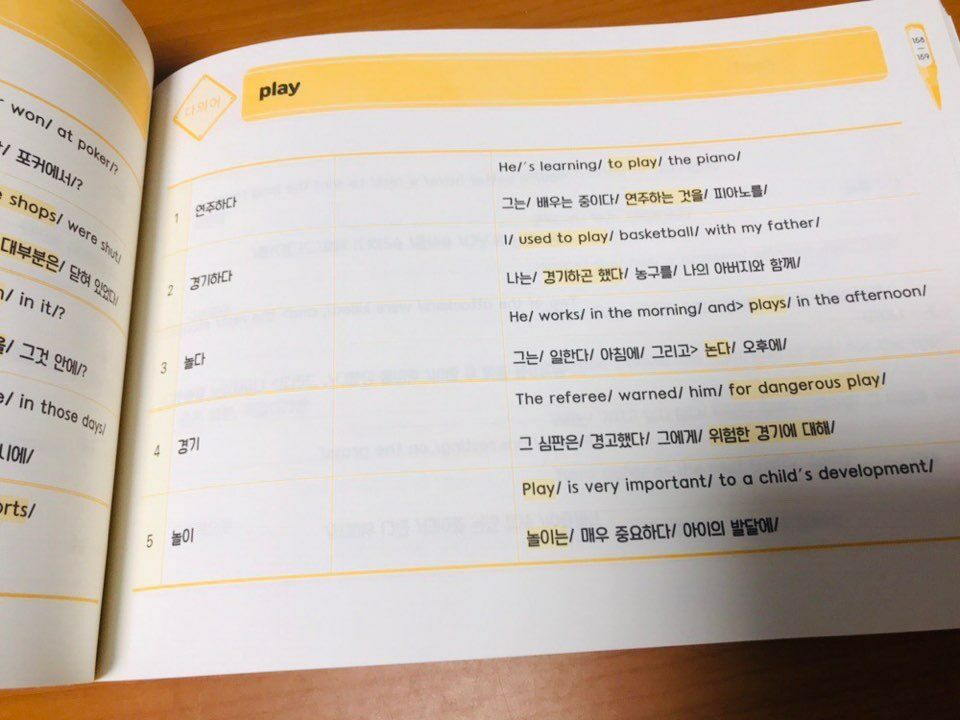 won/ at poker/?
포커에서/?
shops/ were shut/
대부분은/ 닫혀 있었다/
/ in it/?
/ 그것 안에/?
/ in those days/
시에/
orts/
다의어
play
168
169
1
연주하다
He/'s learning/ to play/ the piano/
그는/ 배우는 중이다/ 연주하는 것을/ 피아노를/
2
경기하다
I/ used to play/ basketball/ with my father/
나는/ 경기하곤 했다/ 농구를/ 나의 아버지와 함께/
3
놀다
He/ works/ in the morning/ and> plays/ in the afternoon/
그는/ 일한다/ 아침에/ 그리고> 논다/ 오후에/
4
경기
The referee/ warned/ him/ for dangerous play/
그 심판은/ 경고했다/ 그에게/ 위험한 경기에 대해/
5
놀이
Play/ is very important/ to a child's development/
놀이는/ 매우 중요하다/ 아이의 발달에/